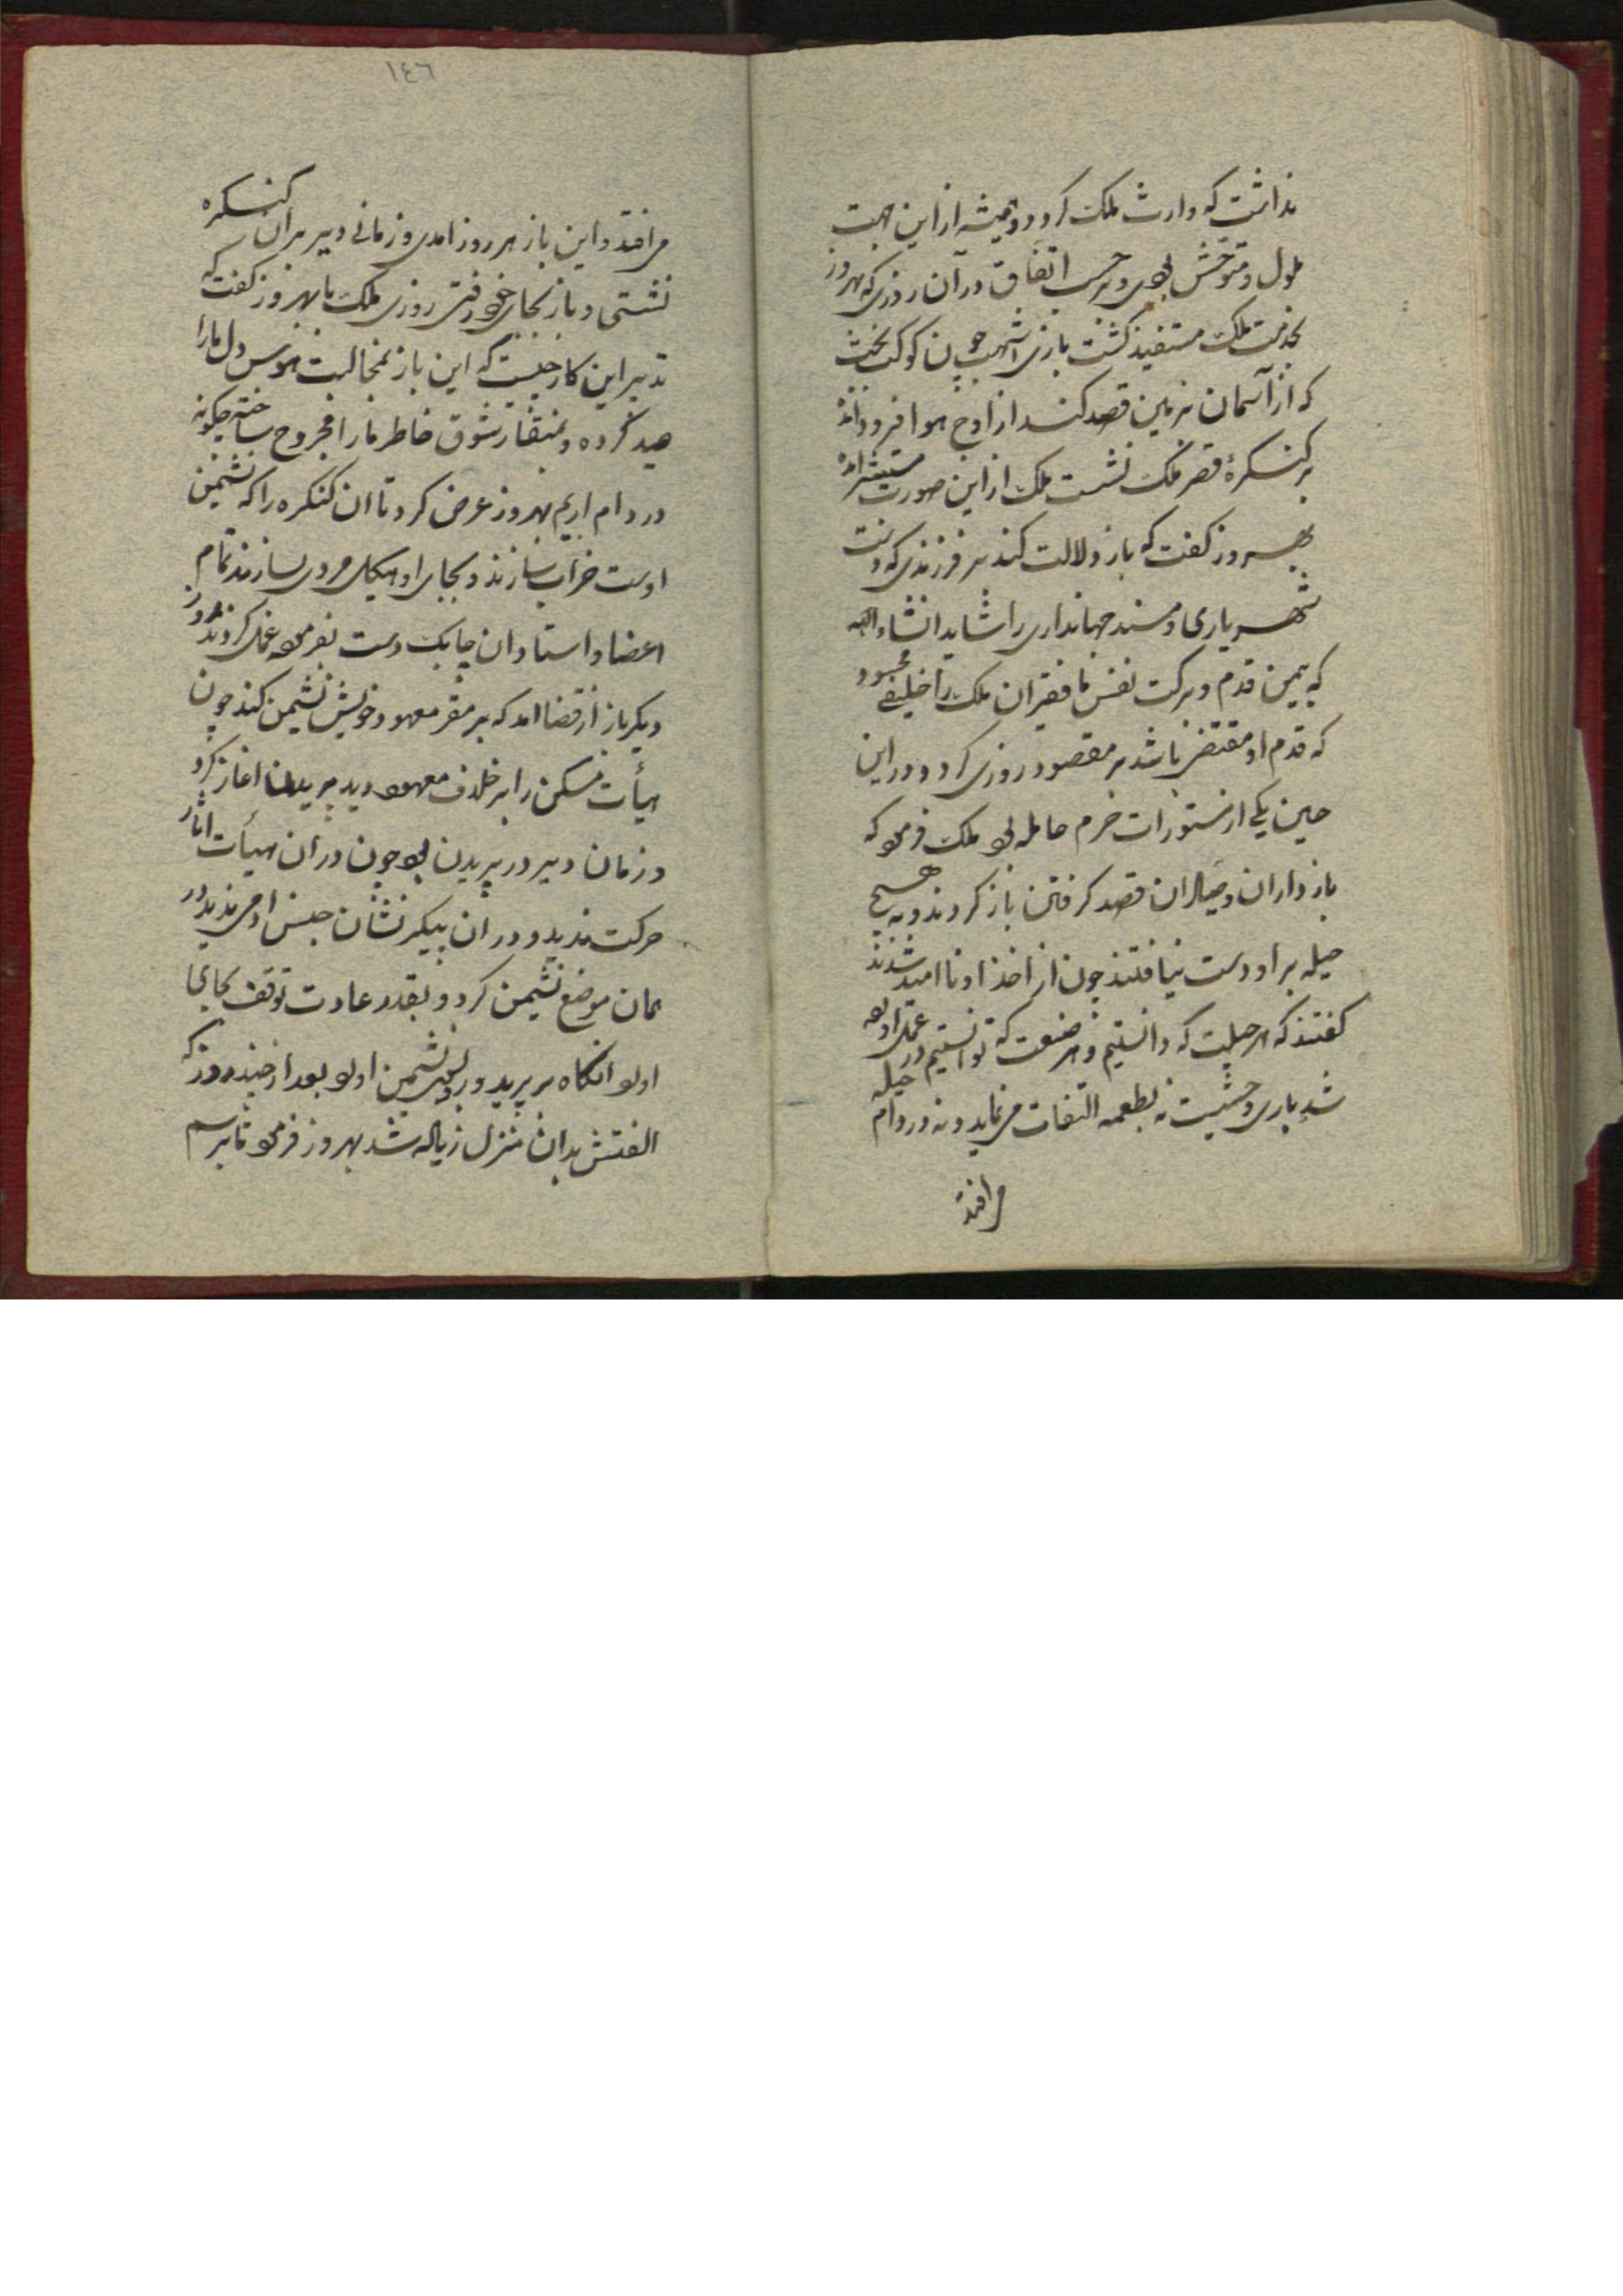 نداشت که وارث ملک گردد و همیشه از این جهت
ملول و متوحش بودی و بر حسب اتفاق در آن روزی که بهروز
بخدمت ملک مستفید گشت بازی اشهب چون کوکب بخت
که از آسمان بزمین قصد کند از اوج هوا فرود آمد
بر کنکرهٔ قصر ملک نشست ملک از این صورت مستبشر آمد
بهروز گفت که باز دلالت کند بر فرزندی که دست
شهریاری و مسند جهانداری را شاید انشاء الله
که بیمن قدم و برکت نفس ما فقیران ملک را خلیفی محمود
که قدم او مقتضی باشد بر مقصود روزی گردد و در این
حین یکی از مستورات حرم حامله بود ملک فرمود که
بازداران و صیادان قصد گرفتن باز کردند و به هیچ
حیله بر او دست نیافتند چون از اخذ او ناامید شدند
گفتند که هر حیلت که دانستیم و هر صنعت که توانستیم در حیله
شد بازی وحشیست نه بطعمه التفات می نماید و نه در دام
می افتد
١٤٦
می افتد و این باز هر روز آمدی و زمانی دیر بر آن کنکره
نشستی و باز بجای خود رفتی روزی ملک با بهروز گفت که
تدبیر این کار چیست که این باز بمخالیب هوس دل ما را
صید کرده و بمنقار شوق خاطر ما را مجروح ساخته چگونه
در دام اریم بهروز عرض کرد تا ان کنکره را که نشیمن
اوست خراب سازند و بجای او هیکل مردی بسازند تمام
اعضا و استادان چابک دست بفرموده عمل کردند روز
دیگر باز از قضا امد که بر مقر معهود خویش نشیمن کند چون
هیأت مسکن را بر خلاف معهود دید پریدن اغاز کرد
و زمان دیر در پریدن بود چون در ان هیأت اثار
حرکت ندید و در ان پیکر نشان جنس ادمی ندید در
همان موضع نشیمن کرد و بقدر عادت توقف بجای
اورد انگاه بر پرید و بسوی نشیمن اول بعد از چند روز که
الفتش بدان منزل زیاده شد بهروز فرمود تا برسم